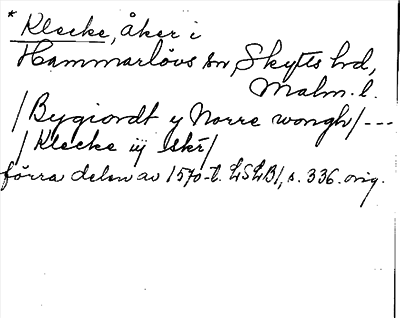 * Klecke, åker i
Hammarlövs sn, Skytts hd,
Malm. l.
/Bygiordt y Norre wongh/---
/Klecke iij skr/
förra delen av 1570-t. LSLB1, s. 336. orig.